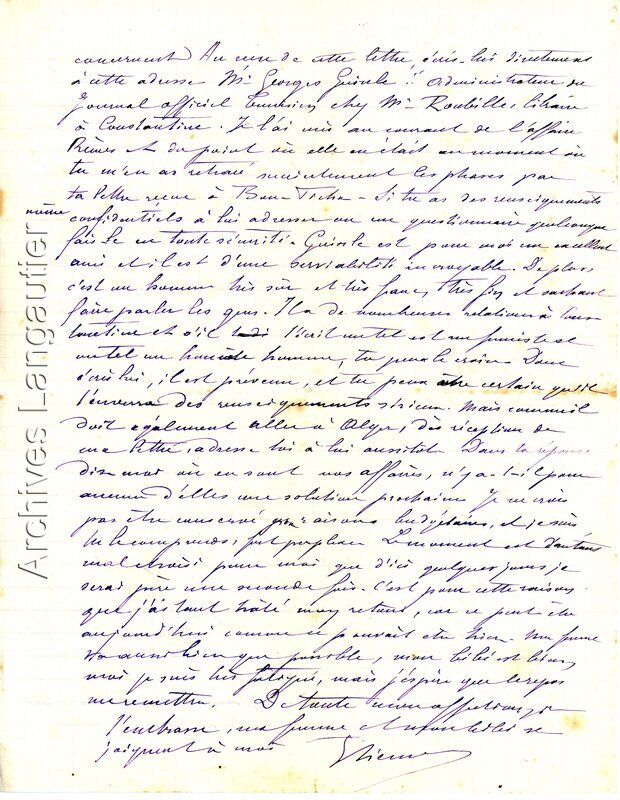 concernent. Au reçu de cette lettre, écris-lui directement
à cette adresse Mr Georges Administrateur du
Journal officiel Tunisien chez Mr Roubille, libraire
à Constantine. Je l'ai mis au courant de l'affaire
et du point où elle en était au moment où
tu m'en as retracé succintement les phases par
ta lettre reçue à Si tu as des renseignements
même confidentiels à lui adresser ou un questionnaire quelconque
fais le en toute sécurité. est pour moi un excellent
ami et il est d'une serviabilité incroyable. De plus,
c'est un homme très sûr et très franc, très fin et sachant
faire parler les gens. Il a de nombreuses relations à Cons-
tantine et s'il t'écrit un tel est un fumiste et
un tel un honnête homme, tu peux le croire. Donc
écris lui, il est prévenu, et tu peux être certain qu'il
t'enverra des renseignements sérieux. Mais comme il
doit également aller à Alger, dès réception de
ma lettre, adresse lui à lui aussitôt. Dans ta réponse
dis-moi où en sont nos affaires, n'y a-t-il pour
aucune d'elles une solution prochaine. Je ne crois
pas être conservé pour raisons budgétaires, et je suis
tu le comprends, fort perplexe. Le moment est d'autant
mal choisi pour moi que d'ici quelques jours je
serai père une seconde fois. C'est pour cette raison
que j'ai tant hâté mon retour, car ce peut être
aujourd'hui comme ce pouvait être hier. Ma femme
va aussi bien que possible, mon bébé est bien,
moi je suis très fatigué, mais j'espère que le repos
me remettra. De toute mon affection, je
t'embrasse, ma femme et mon bébé se
joignent à moi
Etienne
Archives Langautier